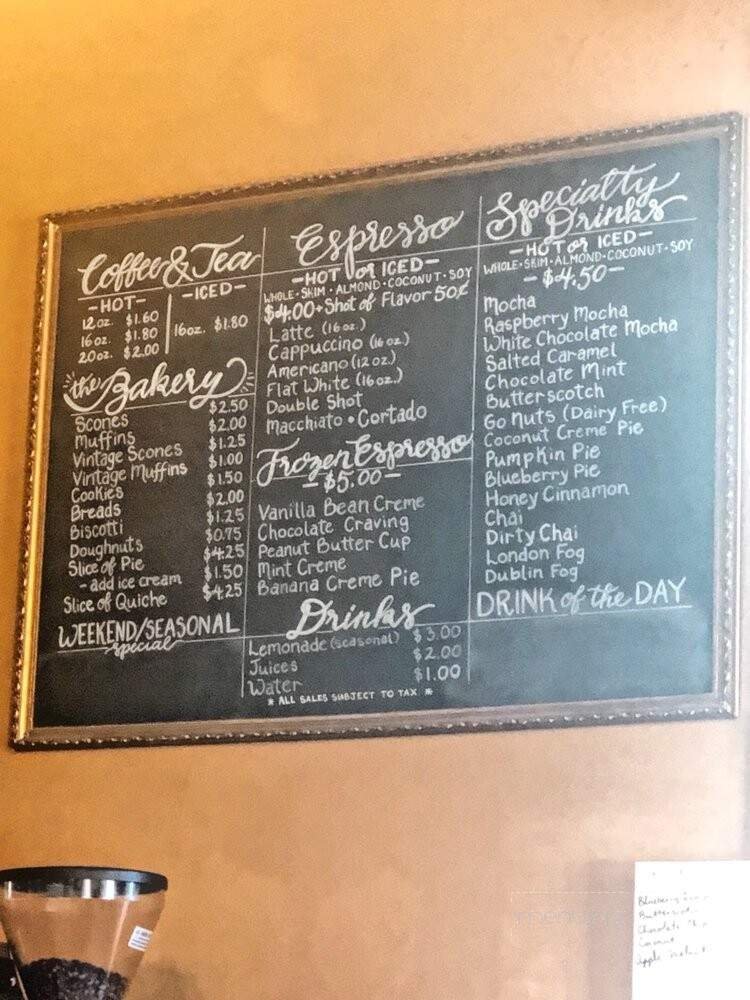 Coffee & Tea
-HOT-
12 oz. $1.60
16 oz. $1.80
20 oz. $2.00
-ICED-
16 oz. $1.80
the Bakery
Scones $2.50
Muffins $2.00
Vintage Scones $1.25
Vintage Muffins $1.00
Cookies $1.50
Breads $2.00
Biscotti $1.25
Doughnuts $0.75
Slice of Pie $4.25
- add ice cream $1.50
Slice of Quiche $4.25
WEEKEND/SEASONAL
special
Espresso
-HOT or ICED-
WHOLE · SKIM · ALMOND · COCONUT · SOY
$4.00 + Shot of Flavor 50¢
Latte (16 oz.)
Cappuccino (16 oz.)
Americano (12 oz.)
Flat White (16 oz.)
Double Shot
Macchiato • Cortado
Frozen Espresso
-$5.00-
Vanilla Bean Creme
Chocolate Craving
Peanut Butter Cup
Mint Creme
Banana Creme Pie
Drinks
Lemonade (seasonal) $3.00
Juices $2.00
Water $1.00
* ALL SALES SUBJECT TO TAX *
Specialty
Drinks
-HOT or ICED-
WHOLE · SKIM · ALMOND · COCONUT · SOY
-$4.50-
Mocha
Raspberry Mocha
White Chocolate Mocha
Salted Caramel
Chocolate Mint
Butterscotch
Go Nuts (Dairy Free)
Coconut Creme Pie
Pumpkin Pie
Blueberry Pie
Honey Cinnamon
Chai
Dirty Chai
London Fog
Dublin Fog
DRINK of the DAY
Blueberry
Chocolate
Coconut
Apple